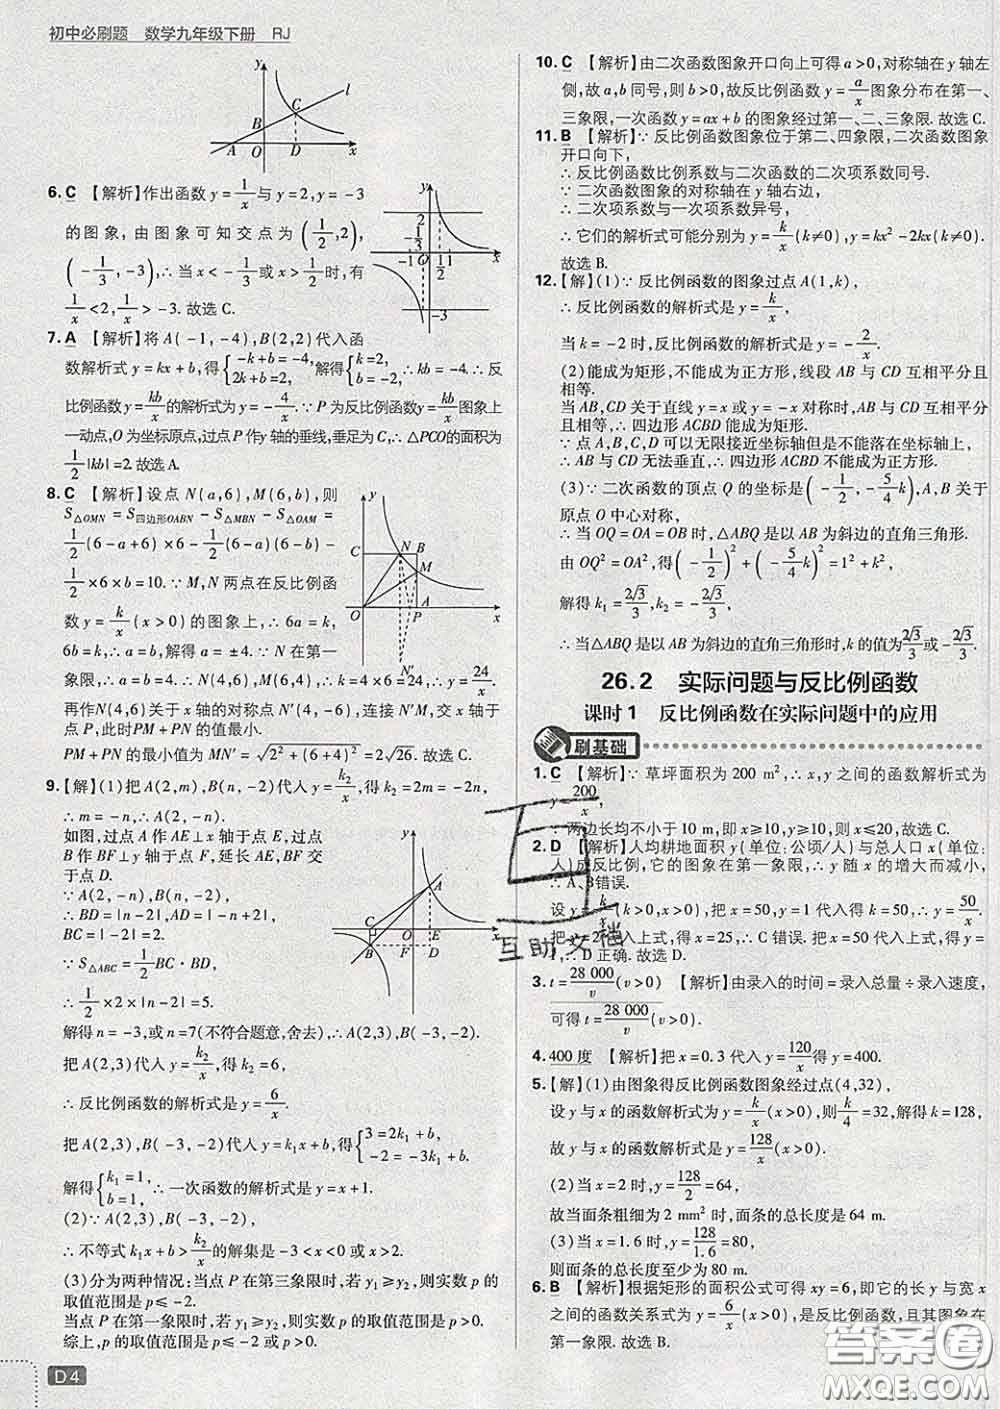 初中必刷题 数学九年级下册 RJ
6. C 【解析】作出函数 y=1/x 与 y=2,y=-3
的图象,由图象可知交点为(1/2,2),
(-1/3,-3),∴当 x<-1/3 或 x>1/2 时,有
1/x<2,1/x>-3.故选 C.
7. A 【解析】将 A(-1,-4),B(2,2)代入函
数解析式 y=kx+b,得{-k+b=-4, 2k+b=2, 解得{k=2, b=-2, ∴kb=-4.∴反
比例函数 y=kb/x 的解析式为 y=-4/x.∵P 为反比例函数 y=kb/x 图象上
一动点,O 为坐标原点,过点 P 作 y 轴的垂线,垂足为 C,∴△PCO 的面积为
1/2|kb|=2.故选 A.
8. C 【解析】设点 N(a,6),M(6,b),则
S△OMN=S四边形OABN-S△MBN-S△OAM=
1/2(6-a+6)×6-1/2(6-a)(6-b)-
1/2×6×b=10.∵M,N 两点在反比例函
数 y=k/x(x>0)的图象上,∴6a=k,
6b=k,∴a=b,解得 a=±4.∵N 在第一
象限,∴a=4.∴N(4,6).∴k=4×6=24,∴y=24/x.
再作 N(4,6)关于 x 轴的对称点 N′(4,-6),连接 N′M,交 x 轴于点
P,此时 PM+PN 的值最小.
PM+PN 的最小值为 MN′=√(2²+(6+4)²)=2√26.故选 C.
9.【解】(1)把 A(2,m),B(n,-2)代入 y=k₂/x,得 k₂=2m=-2n,
∴m=-n,∴A(2,-n).
如图,过点 A 作 AE⊥x 轴于点 E,过点
B 作 BF⊥x 轴于点 F,延长 AE,BC 交
于点 D.
∵A(2,-n),B(n,-2),
∴BD=|n-2|,AD=|-n+2|,
BC=|-2|=2.
∵S△ABC=1/2BC·BD,
∴1/2×2×|n-2|=5.
解得 n=-3,或 n=7(不符合题意,舍去),∴A(2,3),B(-3,-2).
把 A(2,3)代入 y=k₂/x,得 k₂=6,
∴反比例函数的解析式是 y=6/x.
把 A(2,3),B(-3,-2)代入 y=k₁x+b,得{3=2k₁+b, -2=-3k₁+b,
解得{k₁=1, b=1, ∴一次函数的解析式是 y=x+1.
(2)∵A(2,3),B(-3,-2),
∴不等式 k₁x+b>k₂/x 的解集是-3<x<0 或 x>2.
(3)分为两种情况:当点 P 在第三象限时,若 y₁≥y₂,则实数 p 的
取值范围是 p≤-2.
当点 P 在第一象限时,若 y₁≥y₂,则实数 p 的取值范围是 p>0.
综上,p 的取值范围是 p≤-2 或 p>0.
D4
10. C 【解析】由二次函数图象开口向上可得 a>0,对称轴在 y 轴左
侧,故 a,b 同号,则 b>0,故反比例函数 y=a/x 图象分布在第一、
三象限,一次函数 y=ax+b 的图象经过第一、二、三象限.故选 C.
11. B 【解析】∵反比例函数图象位于第二、四象限,二次函数图象
开口向下,
∴反比例函数比例系数与二次函数的二次项系数同号.
∵二次函数图象的对称轴在 y 轴右边,
∴二次项系数与一次项系数异号,
∴它们的解析式可能分别为 y=k/x(k≠0),y=kx²-2kx(k≠0).
故选 B.
12.【解】(1)∵反比例函数的图象过点 A(1,k),
∴反比例函数的解析式是 y=k/x,
当 k=-2 时,反比例函数的解析式是 y=-2/x.
(2)能成为矩形,不能成为正方形,线段 AB 与 CD 互相平分且
相等.
当 AB,CD 关于直线 y=x 或 y=-x 对称时,AB 与 CD 互相平分
且相等,∴四边形 ACBD 能成为矩形.
∵点 A,B,C,D 可以无限接近坐标轴但是不能落在坐标轴上,
∴AB 与 CD 无法垂直,∴四边形 ACBD 不能成为正方形.
(3)∵二次函数的顶点 Q 的坐标是(-1/2,-5/4k),A,B 关于
原点 O 中心对称,
∴当 OQ=OA=OB 时,△ABQ 是以 AB 为斜边的直角三角形.
由 OQ²=OA²,得(-1/2)²+(-5/4k)²=1²+k²,
解得 k₁=2√3/3,k₂=-2√3/3,
∴当△ABQ 是以 AB 为斜边的直角三角形时,k 的值为2√3/3或-2√3/3.
26.2 实际问题与反比例函数
课时1 反比例函数在实际问题中的应用
刷基础
1. C 【解析】∵草坪面积为 200 m²,∴x,y 之间的函数解析式为
y=200/x.
∵两边长均不小于 10 m,即 x≥10,y≥10,则 x≤20,故选 C.
2. D 【解析】人均耕地面积 y(单位:公顷/人)与总人口 x(单位:
人)成反比例,它的图象在第一象限,∴y 随 x 的增大而减小,
∴A、B错误.
设 y=k/x(k>0,x>0),把 x=50,y=1 代入得 k=50,∴y=50/x.
把 y=2 代入上式,得 x=25,∴C 错误.把 x=50 代入上式,得 y=
1,∴D 正确.故选 D.
3. t=28 000/v(v>0) 【解析】由录入的时间=录入总量÷录入速度,
可得 t=28 000/v(v>0).
4. 400 度 【解析】把 x=0.3 代入 y=120/x 得 y=400.
5.【解】(1)由图象得反比例函数图象经过点(4,32),
设 y 与 x 的函数解析式为 y=k/x(x>0),则k/4=32,解得 k=128,
故 y 与 x 的函数解析式是 y=128/x(x>0).
(2)当 x=2 时,y=128/2=64,
故当面条粗细为 2 mm² 时,面条的总长度是 64 m.
(3)当 x=1.6 时,y=128/1.6=80,
则面条的总长度至少为 80 m.
6. B 【解析】根据矩形的面积公式可得 xy=6,即它的长 y 与宽 x
之间的函数关系式为 y=6/x(x>0),是反比例函数,且其图象在
第一象限.故选 B.
互助文档
答案圈
MXQE.COM